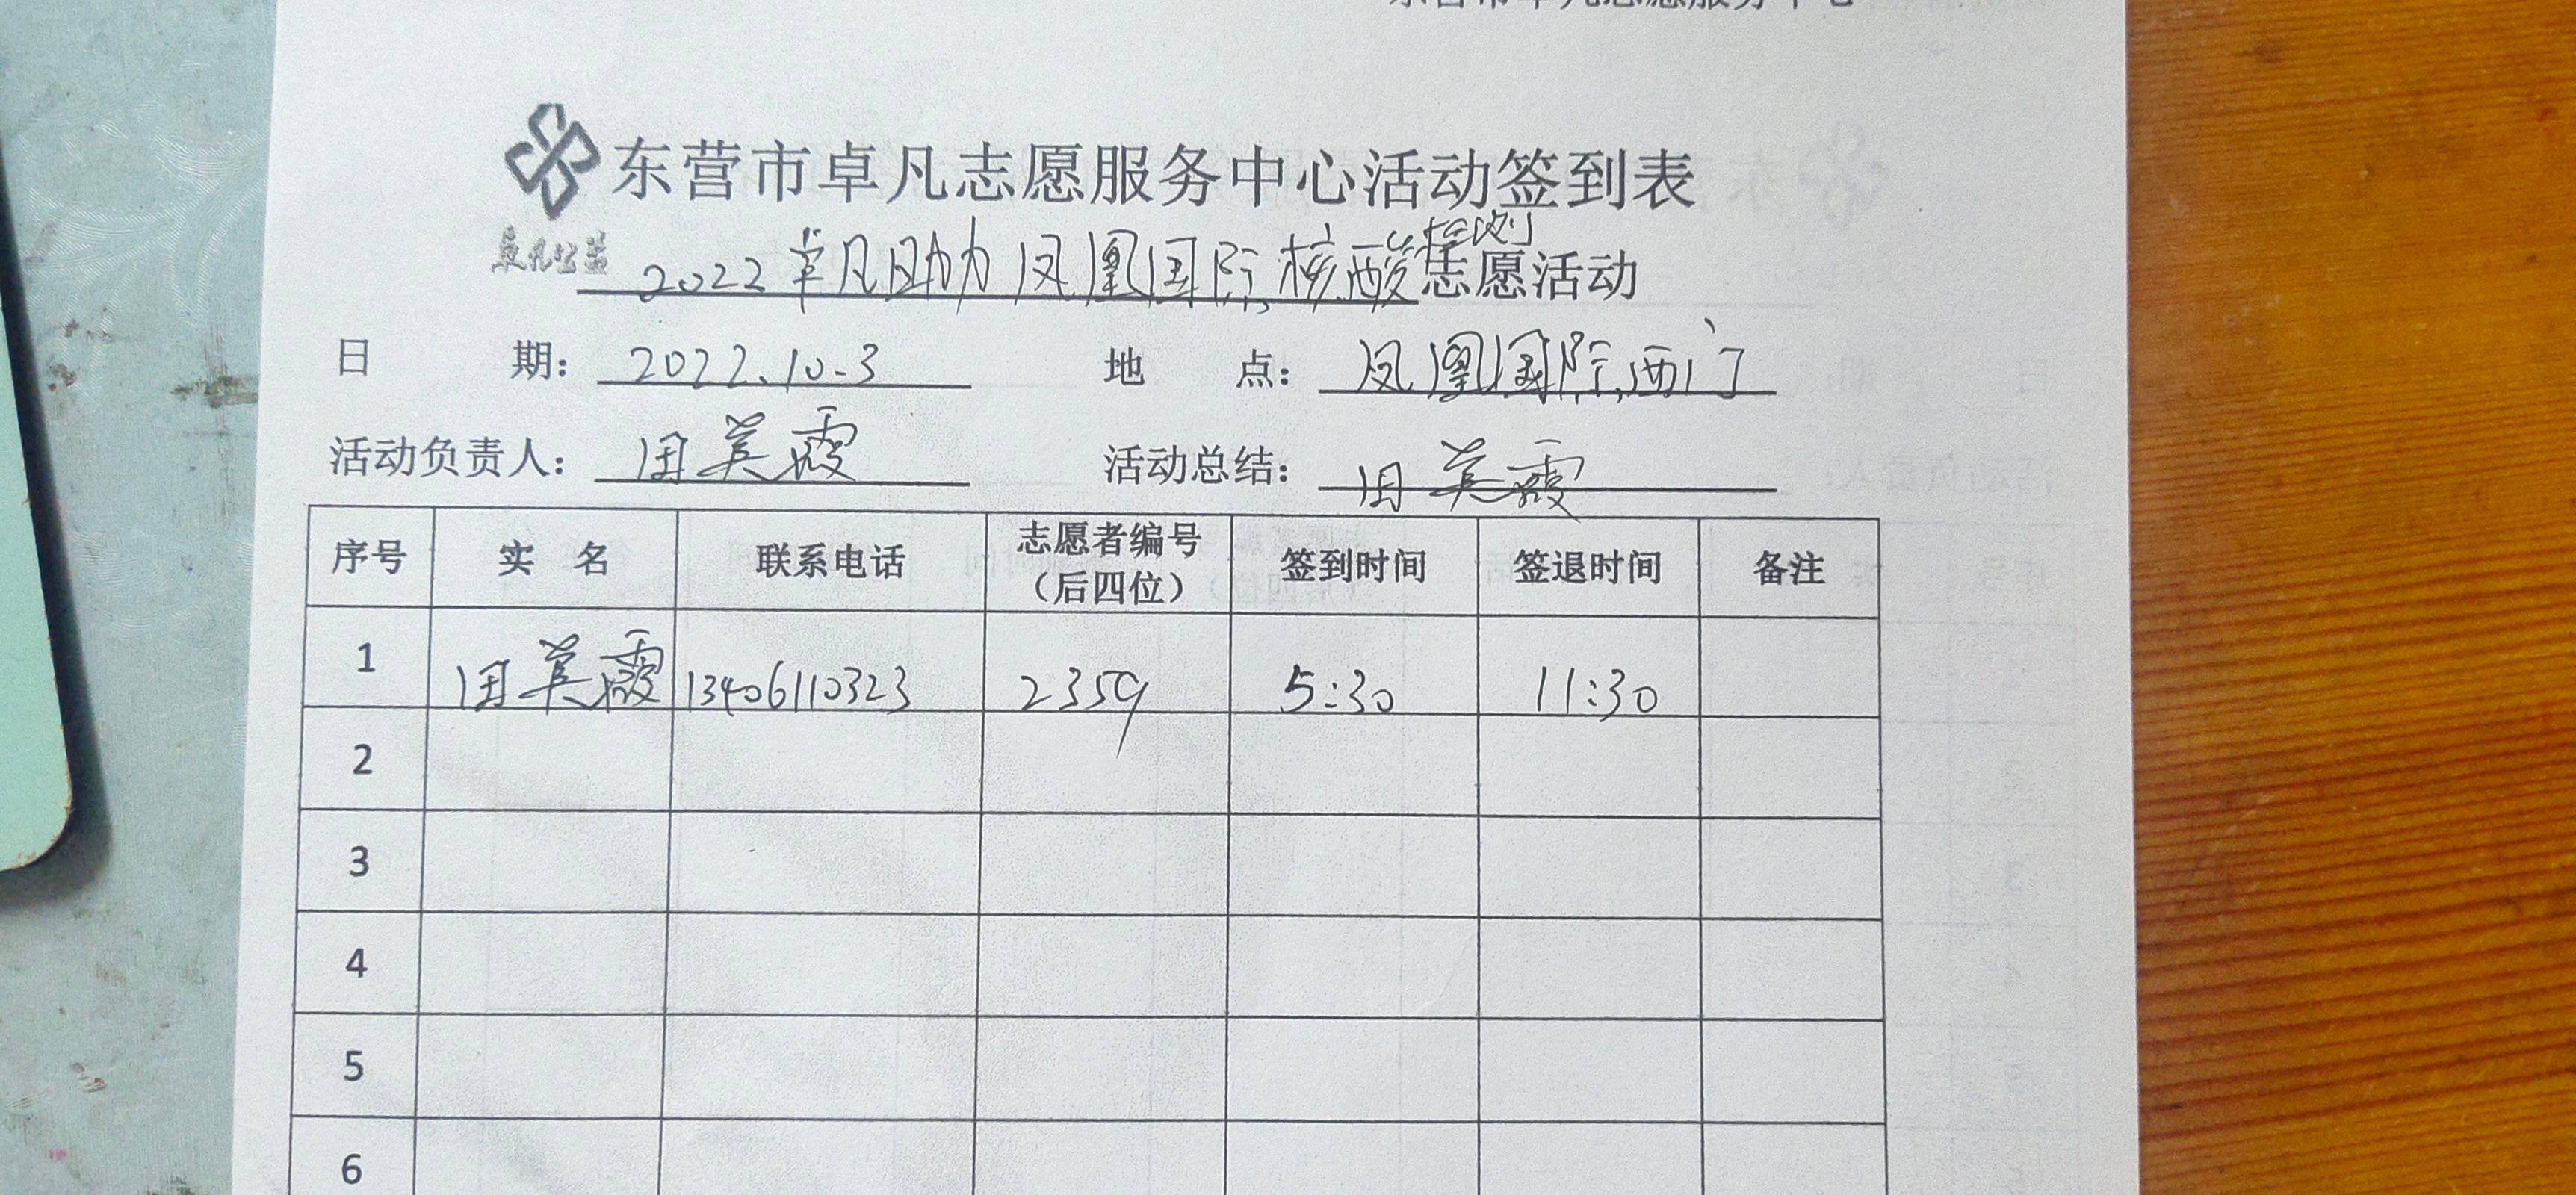 东营市卓凡志愿服务中心
东营市卓凡志愿服务中心活动签到表
卓凡公益
2022卓凡助力凤凰国际核酸检测志愿活动
日期：2022.10.3 地点：凤凰国际西门
活动负责人：田英霞 活动总结：田英霞
序号 实名 联系电话 志愿者编号（后四位） 签到时间 签退时间 备注
1 田英霞 13406110323 2359 5:30 11:30
2
3
4
5
6